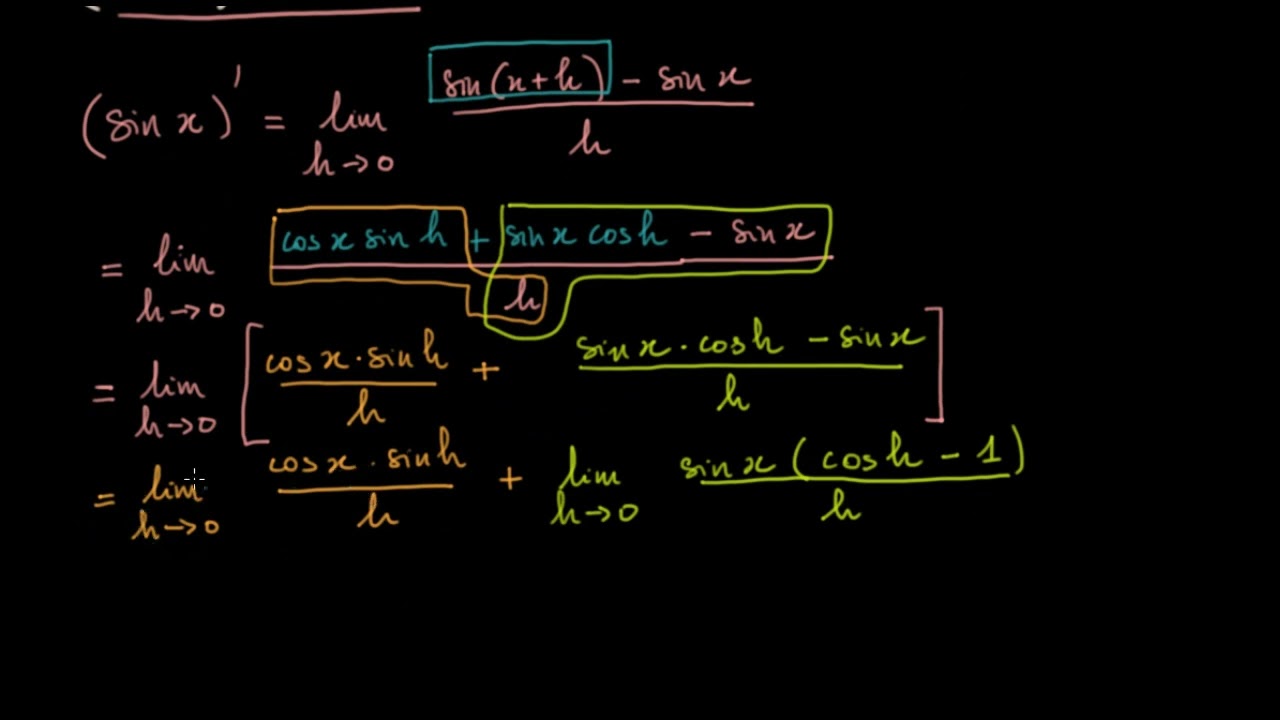 (sin x)' = lim h→0 (sin(x+h) - sin x) / h
= lim h→0 (cos x sin h + sin x cos h - sin x) / h
= lim h→0 [ (cos x · sin h) / h + (sin x · cos h - sin x) / h ]
= lim h→0 (cos x · sin h) / h + lim h→0 (sin x (cos h - 1)) / h